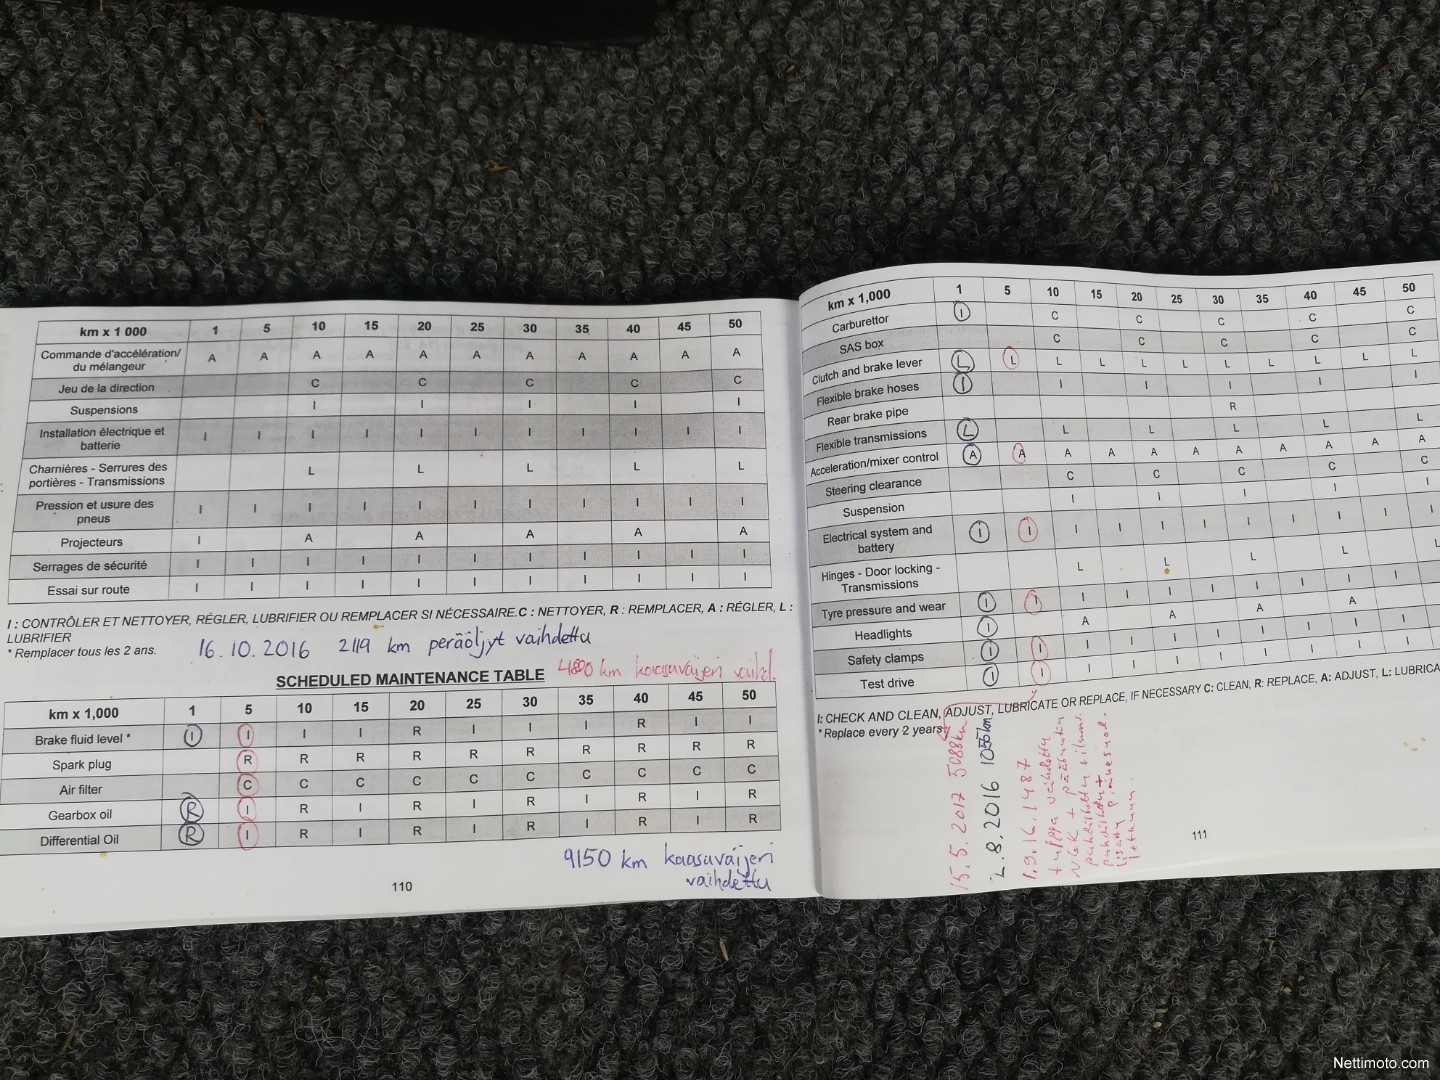 km x 1 000 1 5 10 15 20 25 30 35 40 45 50
Commande d'accélération/
du mélangeur A A A A A A A A A A A
Jeu de la direction C C C C C
Suspensions I I I I I
Installation électrique et
batterie I I I I I I I I I I I
Charnières - Serrures des
portières - Transmissions L L L L L
Pression et usure des
pneus I I I I I I I I I I I
Projecteurs I A A A A A
Serrages de sécurité I I I I I I I I I I I
Essai sur route I I I I I I I I I I I
I : CONTRÔLER ET NETTOYER, RÉGLER, LUBRIFIER OU REMPLACER SI NÉCESSAIRE.C : NETTOYER, R : REMPLACER, A : RÉGLER, L :
LUBRIFIER
* Remplacer tous les 2 ans.
16.10.2016 2119 km peräöljyt vaihdettu
4800 km kaasuvaijeri vaihd.
SCHEDULED MAINTENANCE TABLE
km x 1,000 1 5 10 15 20 25 30 35 40 45 50
Brake fluid level * I I I I R I I I R I I
Spark plug R R R R R R R R R R
Air filter C C C C C C C C C C
Gearbox oil R I R I R I R I R I R
Differential Oil R I R I R I R I R I R
9150 km kaasuvaijeri
vaihdettu
110
km x 1,000 1 5 10 15 20 25 30 35 40 45 50
Carburettor I C C C C C
SAS box C C C C C
Clutch and brake lever L L L L L L L L L L L
Flexible brake hoses I I I I I I
Rear brake pipe R
Flexible transmissions L L L L L L
Acceleration/mixer control A A A A A A A A A A A
Steering clearance C C C C C
Suspension I I I I I
Electrical system and
battery I I I I I I I I I I I
Hinges - Door locking -
Transmissions L L L L L
Tyre pressure and wear I I I I I I I I I I I
Headlights I A A A A
Safety clamps I I I I I I I I I I
Test drive I I I I I I I I I I
I: CHECK AND CLEAN, ADJUST, LUBRICATE OR REPLACE, IF NECESSARY C: CLEAN, R: REPLACE, A: ADJUST, L: LUBRICA
* Replace every 2 years
15.5.2017 5088km
2.8.2016 1056km
1.9.16. 1487
tulppa vaihdettu
NGK +
puhdistettu
puhdistettu +
lisätty
111
Nettimoto.com